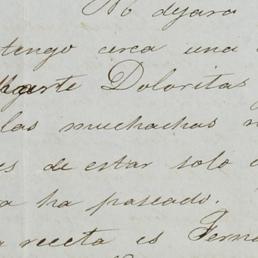 No dejara
tengo cerca una
Doloritas
las muchachas
es de estar solo
a ha paseado.
a receta es Fern